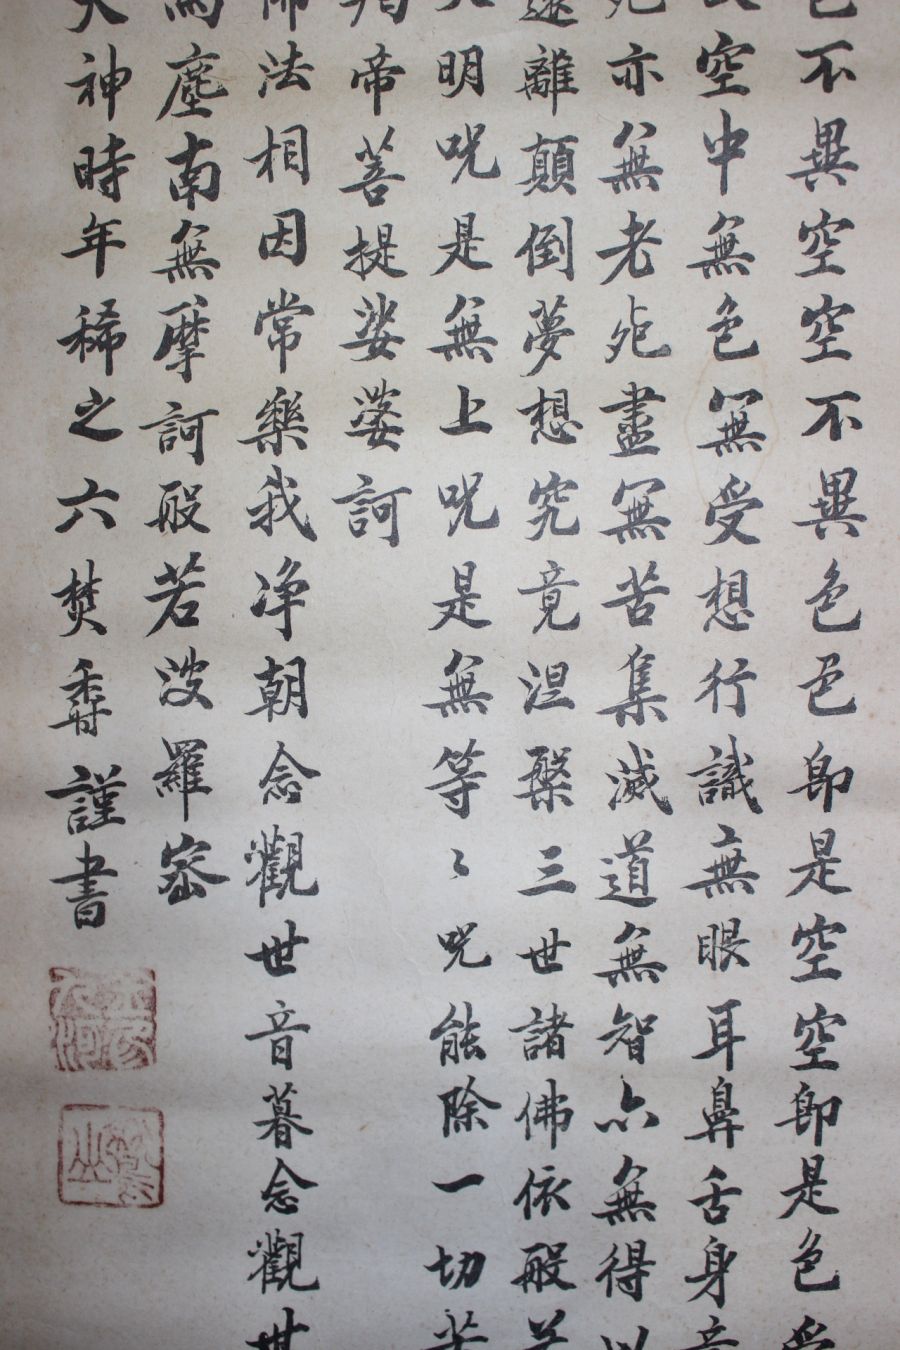 色不異空空不異色色即是空空即是色受
空中無色無受想行識無眼耳鼻舌身意
死亦無老死盡無苦集滅道無智亦無得以
遠離顛倒夢想究竟涅槃三世諸佛依般若
大明呪是無上呪是無等〻呪能除一切苦
羯帝菩提娑婆訶
佛法相因常樂我净朝念觀世音暮念觀世
塵南無摩訶般若波羅蜜
神時年稀之六焚香謹書